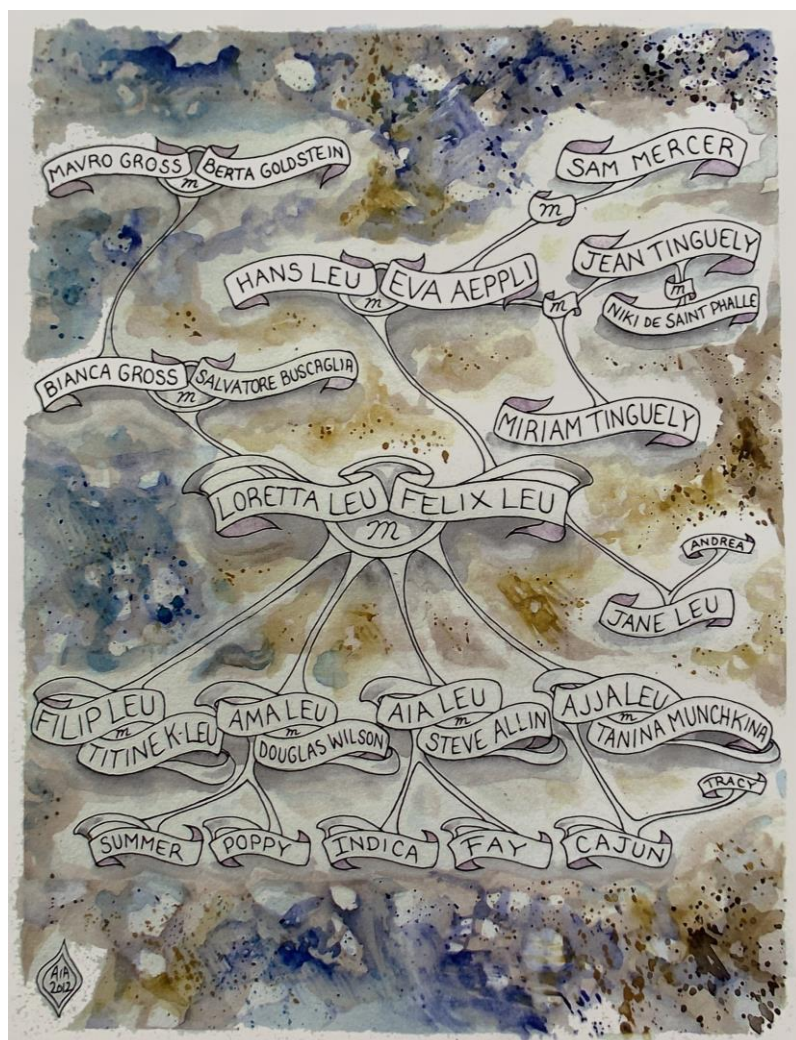 MAVRO GROSS
m
BERTA GOLDSTEIN
SAM MERCER
m
HANS LEU
m
EVA AEPPLI
m
JEAN TINGUELY
m
NIKI DE SAINT PHALLE
BIANCA GROSS
m
SALVATORE BUSCAGLIA
MIRIAM TINGUELY
LORETTA LEU
m
FELIX LEU
ANDREA
JANE LEU
FILIP LEU
m
TITINE K-LEU
AMA LEU
m
DOUGLAS WILSON
AIA LEU
m
STEVE ALLIN
AJJA LEU
m
TANINA MUNCHKINA
TRACY
SUMMER
POPPY
INDICA
FAY
CAJUN
AIA
2012